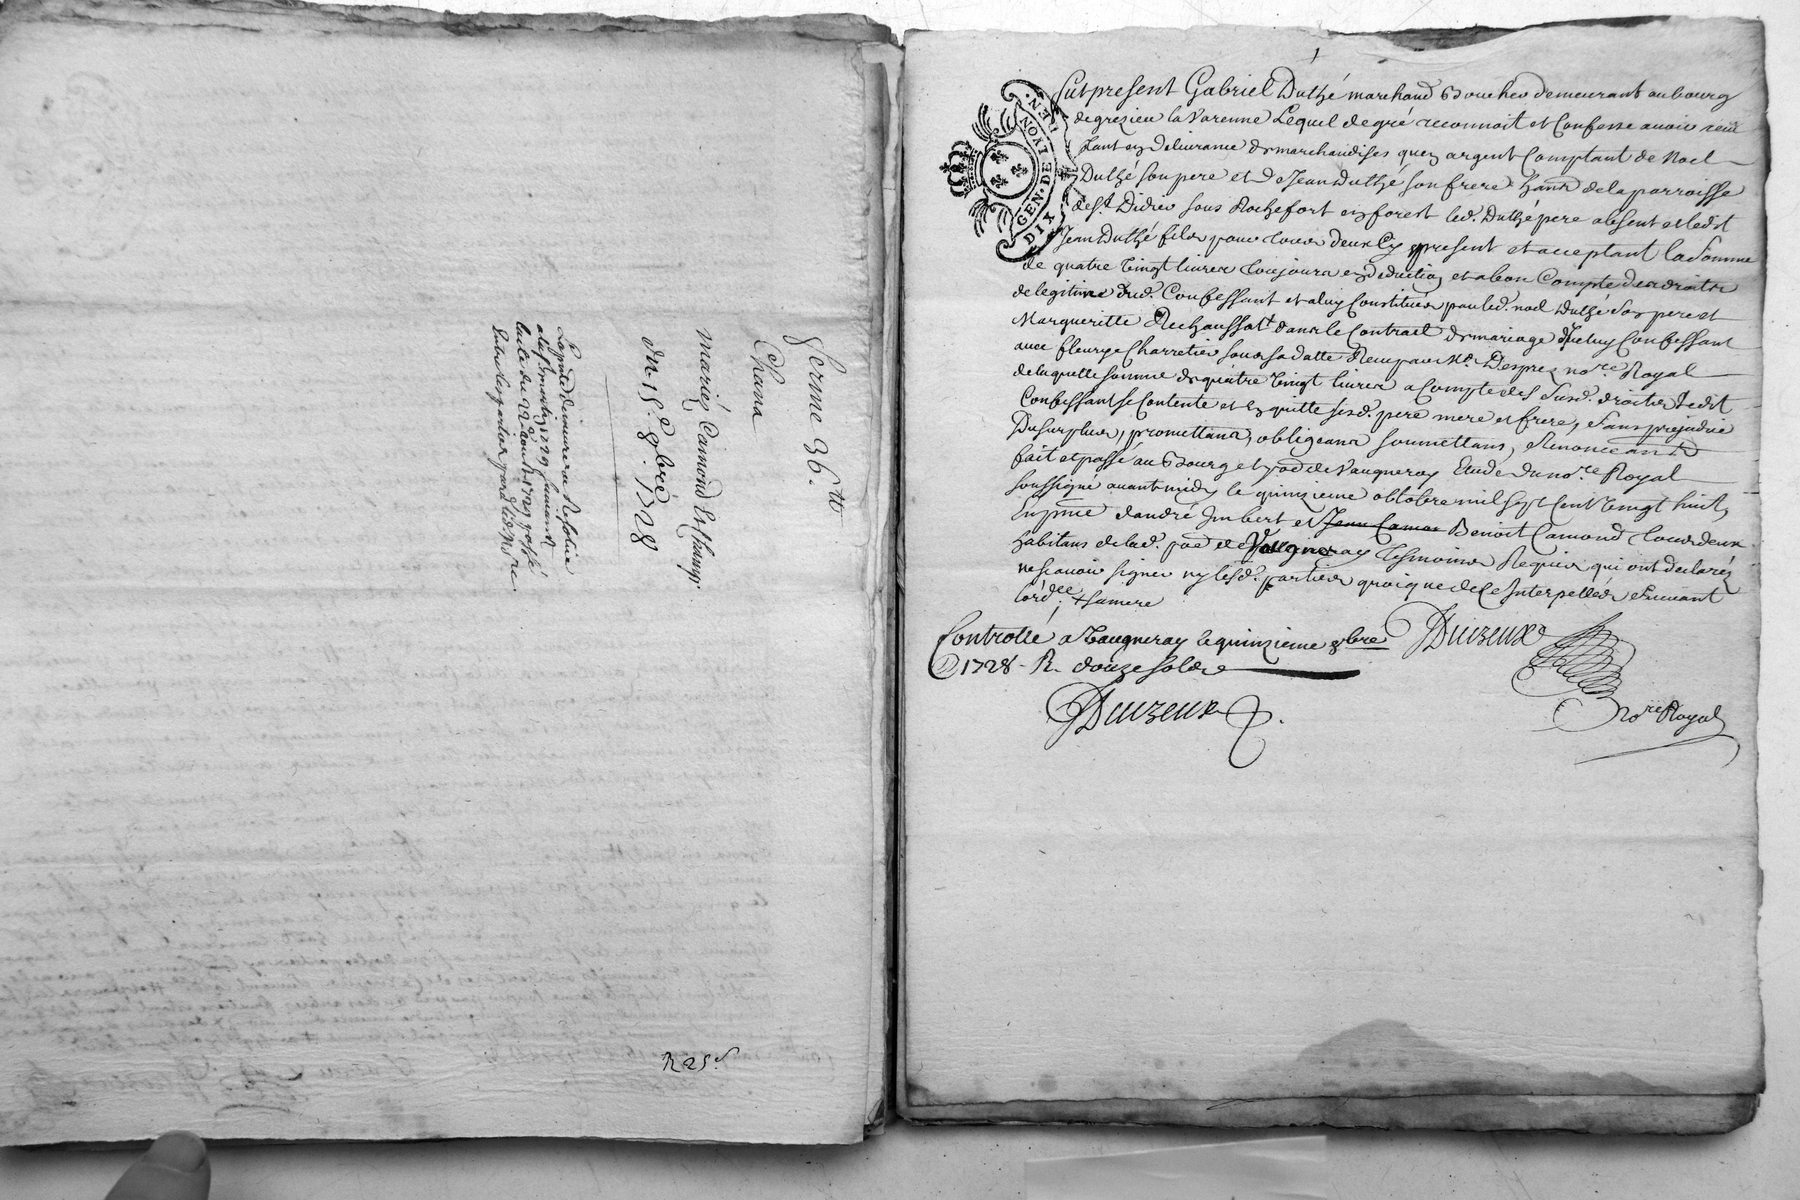 Ferme 36.tt
Chana
mariéz Camond et Thauvy.
du 15.e 8bre. 1728
La pnte demeurera Resoliée
R 25s.
GEN. DE LYON
GEN.
DIX
Fut present Gabriel Duthé marchand Boucher demeurant au bourg
de grezieu la Varenne Lequel de gré reconnoit et Confesse avoir reçu
tant en delivrance de marchandises qu'en argent Comptant de Noel
Duthé son pere et de Jean Duthé son frere hans de la parroisse
de st. Didier sous Rochefort en forest led. Duthé pere absent et ledit
Jean Duthé fils pour tous deux Cy present et acceptant la Somme
de quatre Vingt livres toujours en deduction et a bon Compte des droits
de legitime dud. Confessant et a luy Constitués par led. noel Duthé son pere et
Margueritte Rechaussat dans le Contract de mariage d'Iceluy Confessant
avec fleurye Charretier sous sa datte Reçu par Me. Desprez nore. Royal
de laquelle somme de quatre Vingt livres a compte des Susd. droits ledit
Confessant se Contente et en quitte sesd. pere mere et frere, sans prejudice
Du surplus, promettans, obligeans soumettans, Renonceants
fait et passé au Bourg et psse de Vaugneray Etude du nore. Royal
soussigné avant midy le quinzieme octobre mil sept Cent Vingt huit,
En pnce d'andré Imbert et Jean Camon Benoit Camond tous deux
habitans de lad. psse de Vaugneray tesmoins Requis qui ont declarés
ne scavoir signer ny lesd. parties quoique de Ce Interpellés suivant
l'ordce. + sa mere
Controllé a Vaugneray le quinzieme 8bre
1728 - R. douze sols
Duizeux
nore Royal
Duizeux